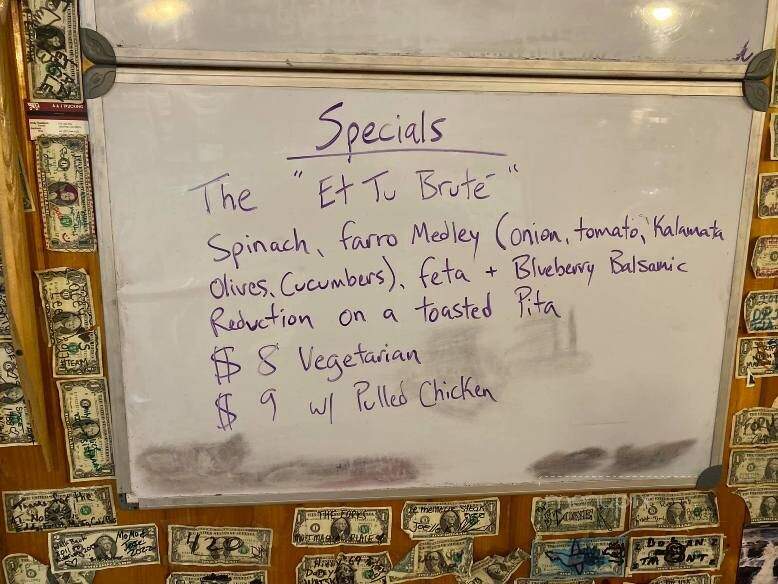 Specials
The "Et Tu Bruté"
Spinach, farro Medley (onion, tomato, Kalamata
Olives, Cucumbers), feta + Blueberry Balsamic
Reduction on a toasted Pita
$ 8 Vegetarian
$ 9 w/ Pulled Chicken
420